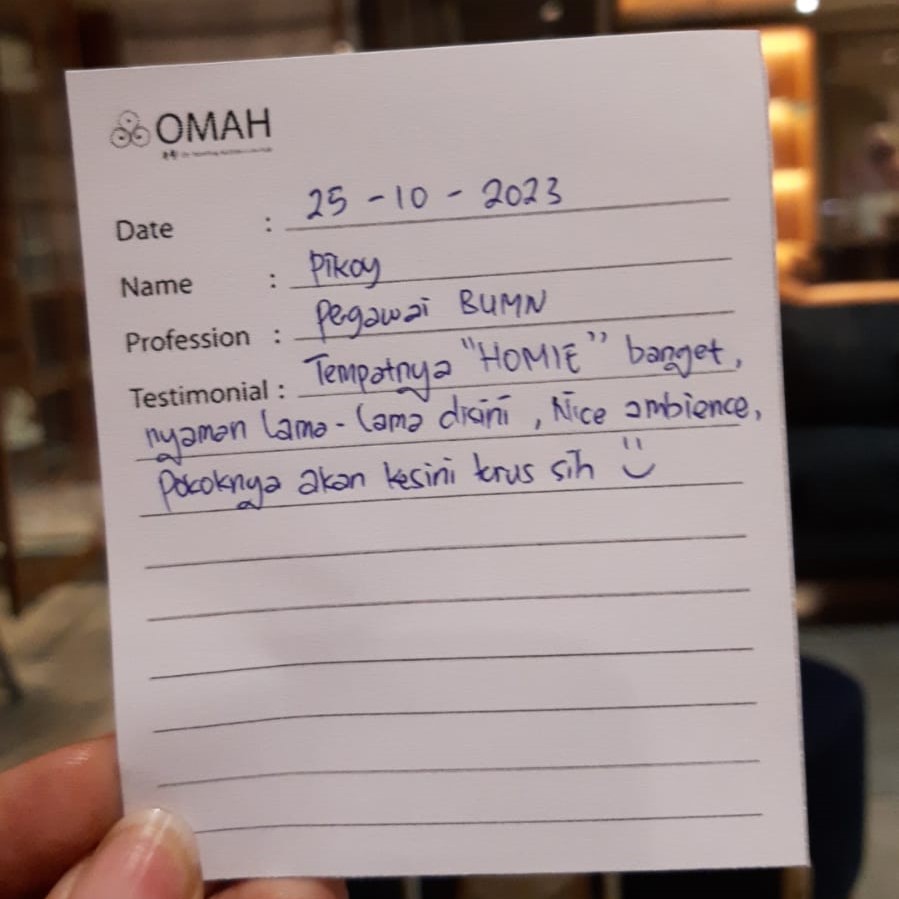 OMAH
Date : 25 - 10 - 2023
Name : Pikoy
Profession : Pegawai BUMN
Testimonial : Tempatnya "HOMIE" banget,
nyaman lama-lama disini, Nice ambience,
Pokoknya akan kesini terus sih :)